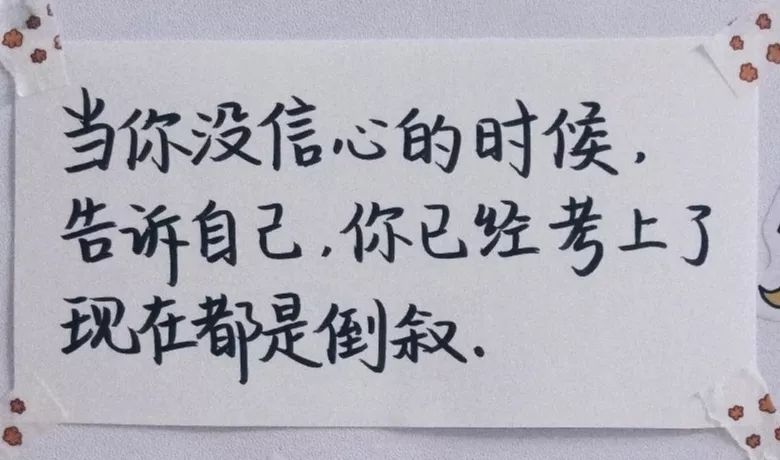 当你没信心的时候,
告诉自己,你已经考上了
现在都是倒叙.